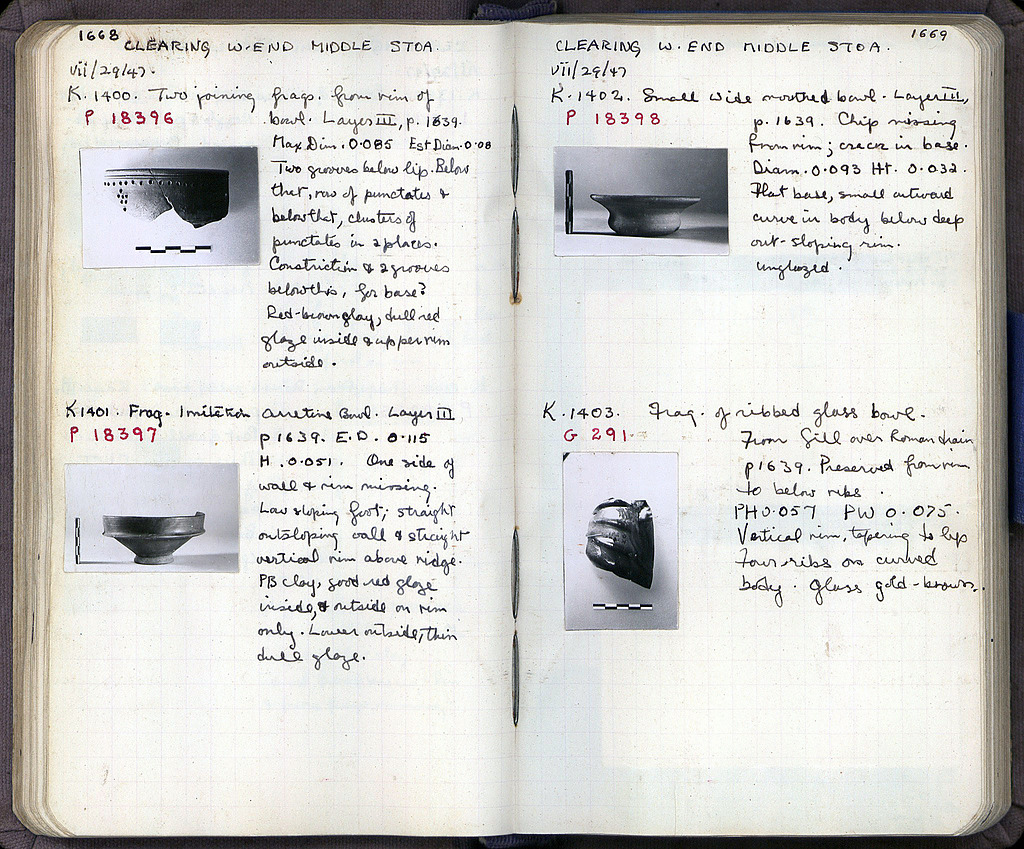 1668
CLEARING W. END MIDDLE STOA.
vii/29/47.
K. 1400. Two joining frags. from rim of
P 18396
bowl. Layer III, p. 1639.
Max. Dim. 0.085 Est Diam. 0.08
Two grooves below lip. Below
that, row of punctates &
below that, clusters of
punctates in 2 places.
Constriction & 2 grooves
below this, for base?
Red-brown clay, dull red
glaze inside & upper rim
outside.
K 1401. Frag. Imitation Arretine Bowl. Layer III
P 18397
p 1639. E.D. 0.115
H. 0.051. One side of
wall & rim missing.
Low sloping foot; straight
outsloping wall & straight
vertical rim above ridge.
PB clay, good red glaze
inside, & outside on rim
only. Lower outside, thin
dull glaze.
1669
CLEARING W. END MIDDLE STOA.
vii/29/47
K. 1402. Small wide mouthed bowl. Layer III,
P 18398
p. 1639. Chip missing
from rim; crack in base.
Diam. 0.093 Ht. 0.032.
Flat base, small outward
curve in body below deep
out-sloping rim.
Unglazed.
K. 1403. Frag. of ribbed glass bowl.
G 291.
From fill over Roman drain
p 1639. Preserved from rim
to below ribs.
PH 0.057 PW 0.075.
Vertical rim, tapering to lip
Four ribs on curved
body. Glass gold-brown.